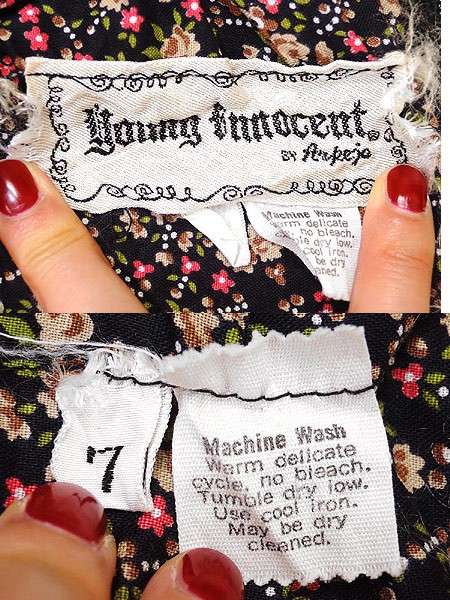 Young Innocent.
BY Arpeja
Machine Wash
Warm delicate
no bleach.
dry low.
cool iron.
be dry
7
Machine Wash
Warm delicate
cycle, no bleach.
Tumble dry low.
Use cool iron.
May be dry
cleaned.